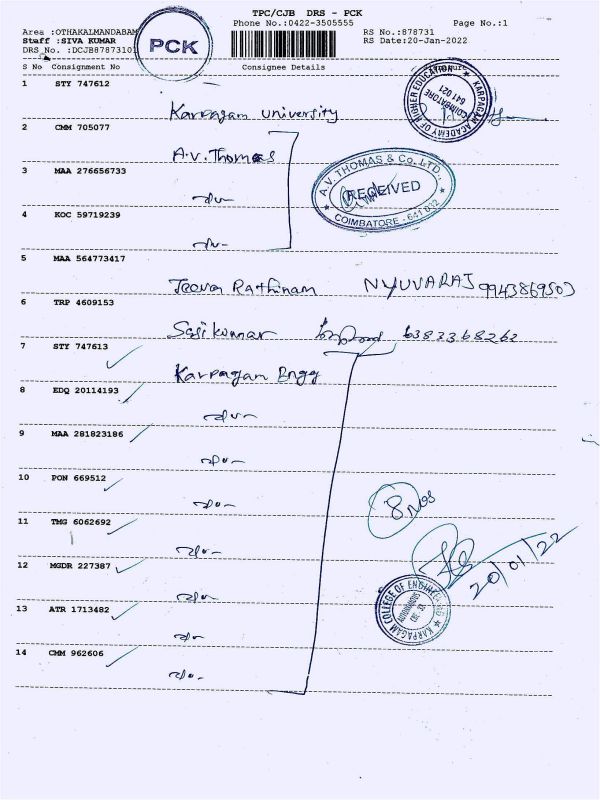 TPC/CJB DRS - PCK
Phone No.:0422-3505555 Page No.:1
Area :OTHAKALMANDABAM
RS No.:878731
Staff :SIVA KUMAR
RS Date:20-Jan-2022
DRS No. :DCJB8787310
PCK
S No Consignment No Consignee Details
1 STY 747612
Karpagam University
KARPAGAM ACADEMY OF HIGHER EDUCATION
COIMBATORE
641 021
2 CMM 705077
A.V. Thomas
3 MAA 276656733
-do-
A.V. THOMAS & Co. LTD.,
RECEIVED
COIMBATORE - 641 032
4 KOC 59719239
-do-
5 MAA 564773417
Jeeva Rathinam N YUVARAJ 9943869503
6 TRP 4609153
Sasikumar 6382368262
7 STY 747613
Karpagam Engg
8 EDQ 20114193
-do-
9 MAA 281823186
-do-
10 PON 669512
-do-
8 nos
11 TMG 6062692
-do-
20/01/22
12 MGDR 227387
-do-
KARPAGAM COLLEGE OF ENGINEERING
AUTONOMOUS
13 ATR 1713482
-do-
14 CMM 962606
-do-